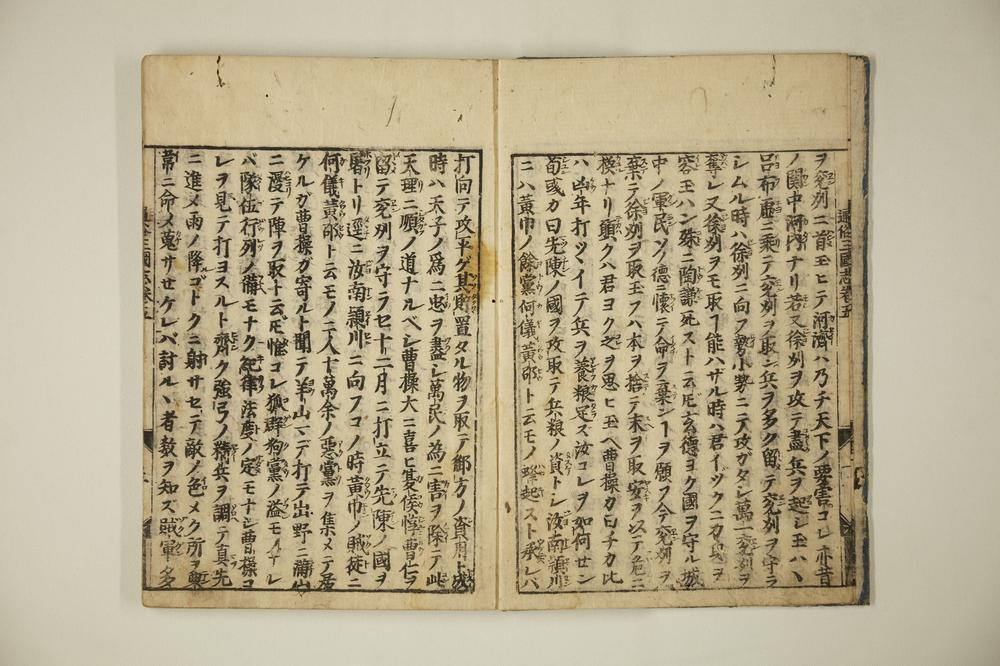 ヲ兗州ニ首玉ヒテ河濟ハ乃チ天下ノ要害コレ亦昔
ノ關中河内ナリ若又徐州ヲ攻テ盡ク兵ヲ起シ玉ハヽ
呂布虚ニ乘テ兗州ヲ取ン兵ヲ多ク留テ兗州ヲ守ラ
シムル時ハ徐州ニ向フ勢小勢ニテ攻ガタシ萬一兗州ヲ
奪レ又徐州ヲモ取ヿ能ハザル時ハ君イヅクニカ身ヲ
容玉ハン殊ニ陶謙死ストイヘ𪜈玄德ヨク國ヲ守ル城
中ノ軍民ソノ德ニ懷テ命ヲ棄ンヿヲ願フ今兗州ヲ
棄テ徐州ヲ取玉フハ本ヲ捨テ末ヲ取安ヲ以テ危ニ
換ナリ願クハ君ヨク之ヲ思ヒ玉ヘ曹操カ曰チカ比
ハ凶年打ツヾイテ兵ヲ養粮足ズ汝コレヲ如何セン
荀彧カ曰先陳ノ國ヲ攻取テ兵粮ノ資トシ汝南頴川
ニハ黄巾ノ餘黨何儀黄邵ト云モノ蜂起スト承レバ
打向テ攻平ゲ其貯置タル物ヲ取テ御方ノ資用ト成
時ハ天子ノ爲ニ忠ヲ盡シ萬民ノ爲ニ害ヲ除テ此
天理ニ順ノ道ナルベシ曹操大ニ喜ヒ夏侯惇曹仁ヲ
留テ兗州ヲ守ラセ十二月ニ打立テ先陳ノ國ヲ
屠トリ逕ニ汝南頴川ニ向フコノ時黄巾ノ賊徒ニ
何儀黄邵ト云モノ二人十萬余ノ惡黨ヲ集メテ居
ケルガ曹操ガ寄ルト聞テ羊山マデ打テ出野ニ滿山
ニ漫テ陣ヲ取ト云𪜈惟コレ狐群狗黨ノ溢モノナレ
バ隊伍行列ノ備モナク紀律法度ノ定モナシ曹操コ
レヲ見テ打ヨスルト齊ク強弓ノ精兵ヲ調テ真先
ニ進メ雨ノ降ゴトクニ射サセテ敵ノ色メク所ヲ
韋ニ命メ蒐サセケレバ討ルヽ者数ヲ知ズ賊軍多
通俗三國志卷五